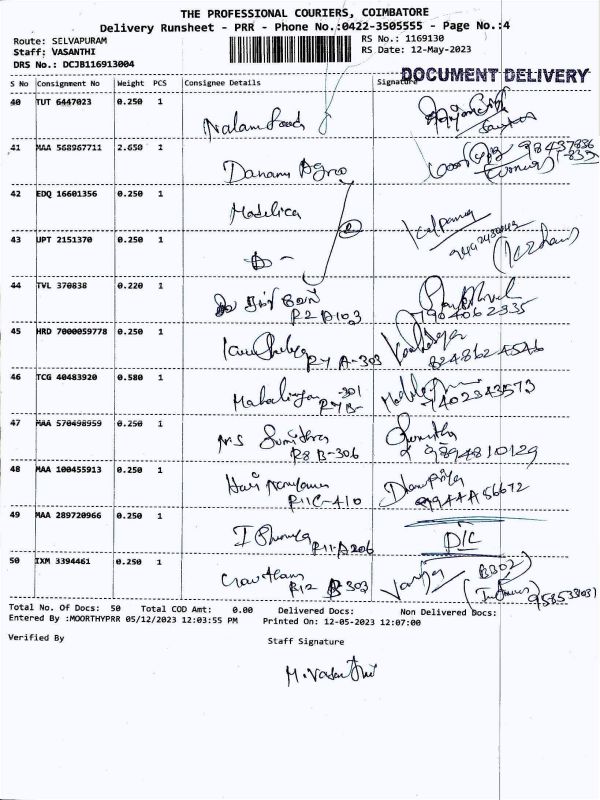 THE PROFESSIONAL COURIERS, COIMBATORE
Delivery Runsheet - PRR - Phone No.:0422-3505555 - Page No.:4
Route: SELVAPURAM RS No.: 1169130
Staff: VASANTHI RS Date: 12-May-2023
DRS No.: DCJB116913004
DOCUMENT DELIVERY
S No Consignment No Weight PCS Consignee Details Signature
40 TUT 6447023 0.250 1
41 MAA 568967711 2.650 1 Danam Agro
42 EDQ 16601356 0.250 1 Madelica
43 UPT 2151370 0.250 1
44 TVL 370838 0.220 1
R2 A103 7904062335
45 HRD 7000059778 0.250 1
A-303 8248624546
46 TCG 40483920 0.580 1 -301
7402343573
47 MAA 570498959 0.250 1 MS Sumithra
R8 B-306 9894810129
48 MAA 100455913 0.250 1 Hari
R11C-410
49 MAA 289720966 0.250 1
R11-A206 D/C
50 IXM 3394461 0.250 1
R12 B-303
Total No. Of Docs: 50 Total COD Amt: 0.00 Delivered Docs: Non Delivered Docs:
Entered By :MOORTHYPRR 05/12/2023 12:03:55 PM Printed On: 12-05-2023 12:07:00
Verified By Staff Signature
M. Vasanthi